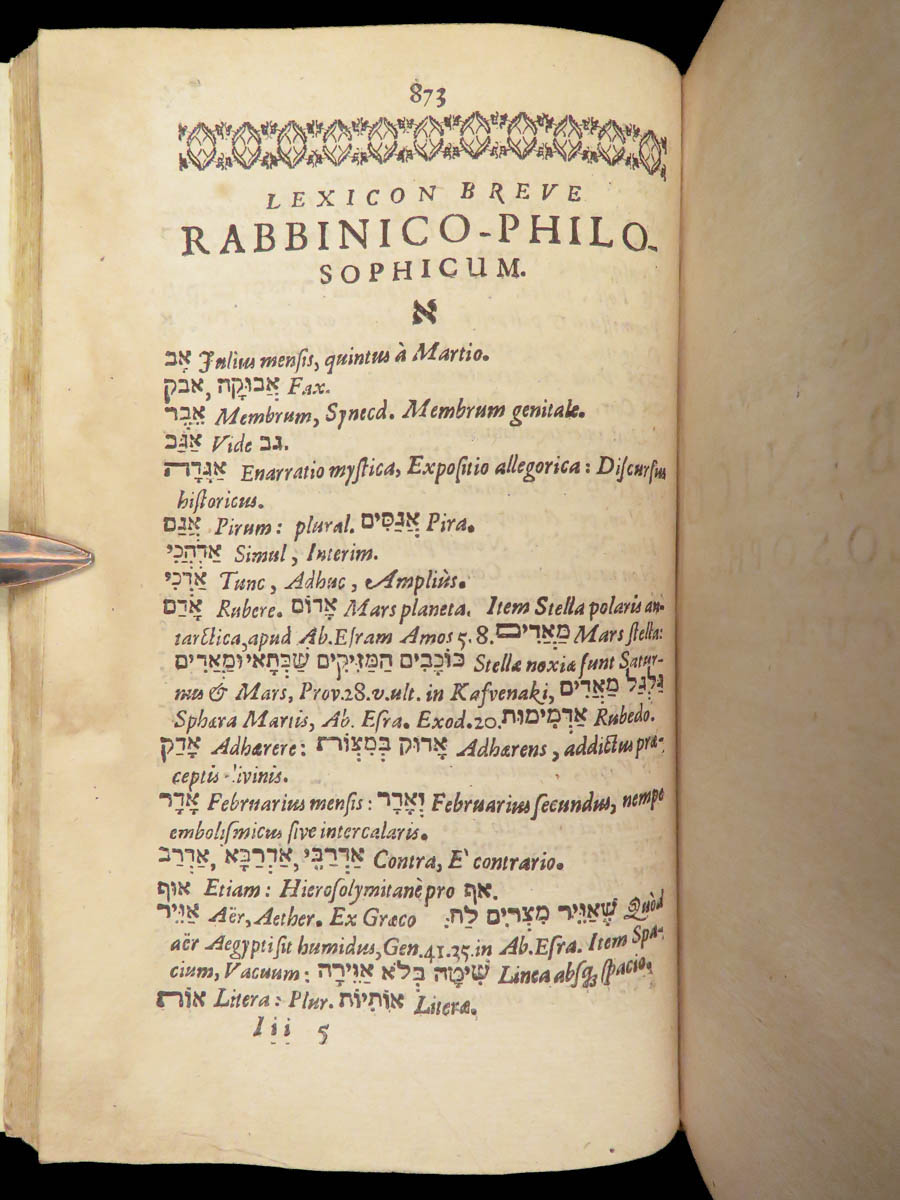 873
LEXICON BREVE
RABBINICO-PHILO-
SOPHICUM.
א
אָב Julius menſis, quintus à Martio.
אבק, אֲבוּקָה Fax.
אֵבֶר Membrum, Synecd. Membrum genitale.
אַגַּב Vide גב.
אַגָּדָה Enarratio myſtica, Expoſitio allegorica: Diſcurſus
hiſtoricus.
אֲגַס Pirum: plural. אֲגַסִּים Pira.
אַדְהֲכִי Simul, Interim.
אַדְכִי Tunc, Adhuc, Ampliùs.
אָדַם Rubere. אָדוֹם Mars planeta. Item Stella polaris an-
tarctica, apud Ab. Eſram Amos 5. 8. מַאֲדִים Mars ſtella:
כּוֹכָבִים הַמַּזִּיקִים שַׁבְּתָאי וּמַאֲדִים Stellæ noxiæ ſunt Satur-
nus & Mars, Prov. 28. v. ult. in Kafvenaki, גַלְגַל מַאֲדִים
Sphæra Martis, Ab. Eſra. Exod. 20. אַדְמִימוּת Rubedo.
אָדַק Adhærere: אָדוּק בְּמִצְוֹת Adhærens, addictus præ-
ceptis divinis.
אֲדָר Februarius menſis: וַאֲדָר Februarius ſecundus, nempe
emboliſmicus ſive intercalaris.
אַדְרַבֵּי, אַדְרַבָּא, אַדְרַב Contra, E' contrario.
אוּף Etiam: Hieroſolymitanè pro אַף.
אֲוִיר Aër, Aether. Ex Græco שֶׁאֲוִיר מִצְרִים לַח: Quòd
aër Aegypti ſit humidus, Gen. 41. 35. in Ab. Eſra. Item Spa-
cium, Vacuum: שִׁיטָה בְּלֹא אֲוִירָה Linea absq; ſpacio.
אוֹת Litera: Plur. אוֹתִיּוֹת Literæ.
Iii 5